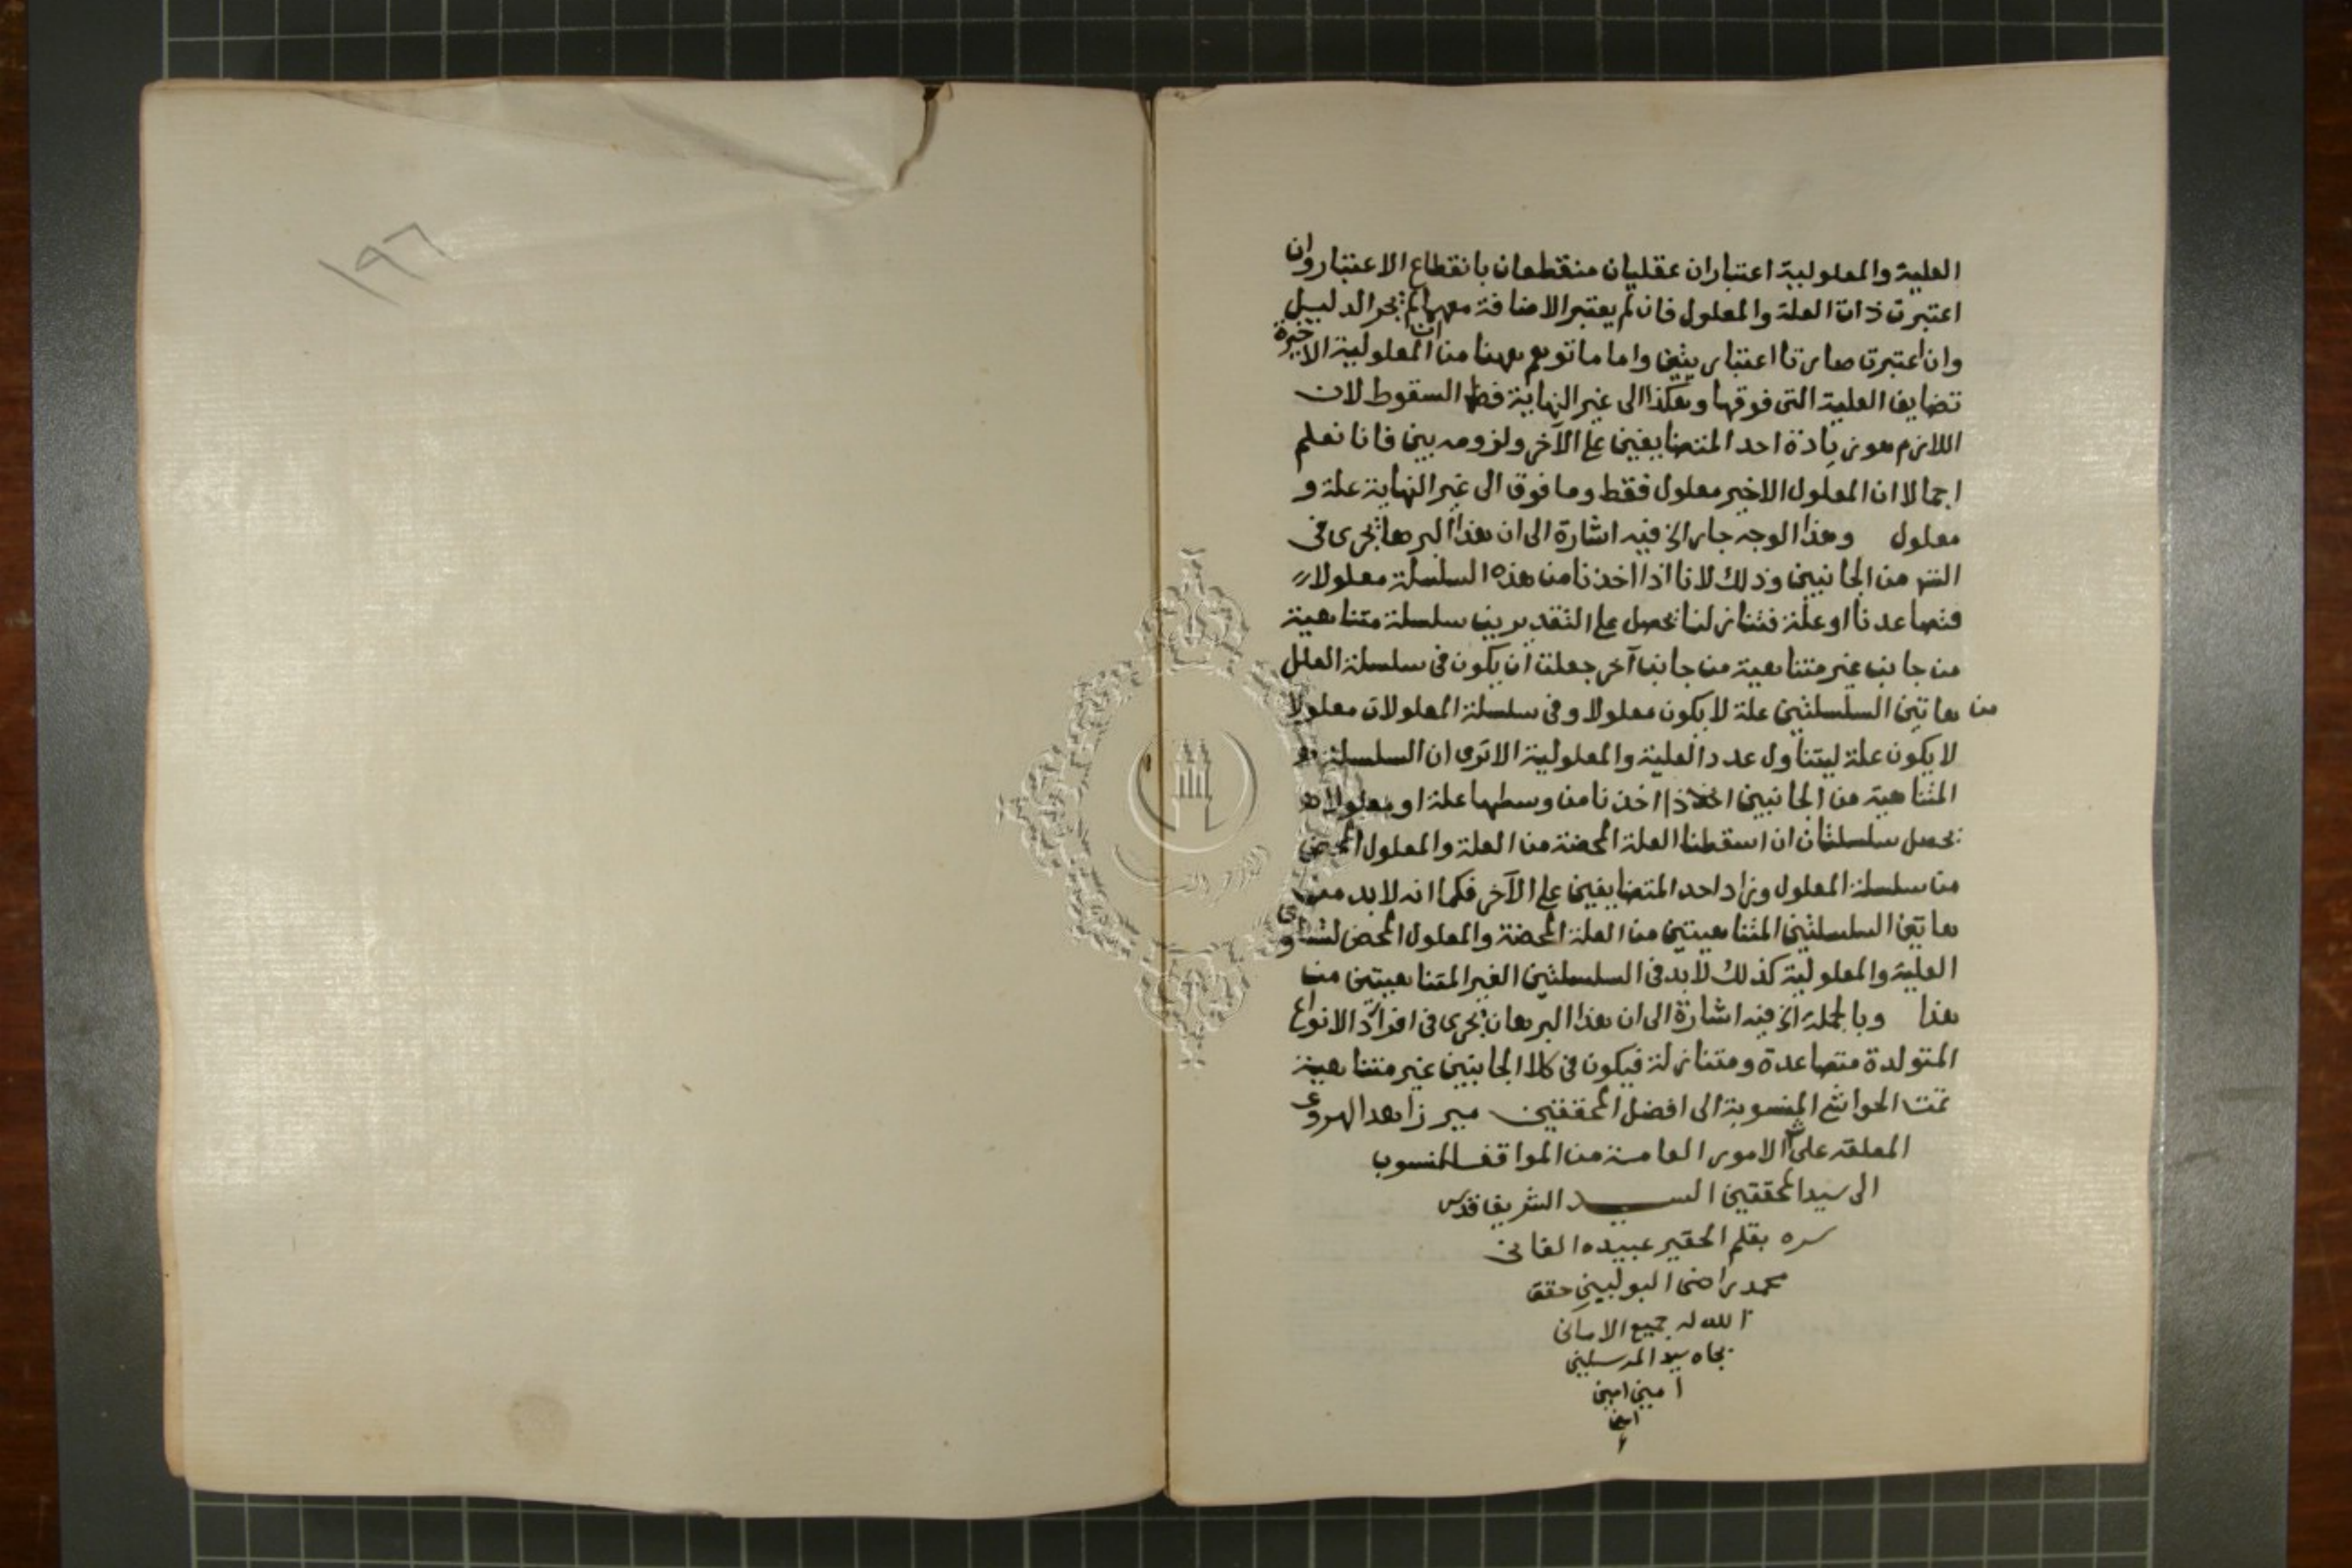 العلية والمعلولية اعتباران عقليان منقطعان بانقطاع الاعتبار وان
اعتبرت ذات العلة والمعلول فان لم يعتبر الاضافة معهما لم يجر الدليل
وان اعتبرت صارتا اعتباريتين واما ما توهم ههنا من ان المعلولية الاخيرة
تضايف العلية التى فوقها وهكذا الى غير النهاية فظ السقوط لان
اللازم هو زيادة احد المتضايفين على الآخر ولزومه بين فانا نعلم
اجمالا ان المعلول الاخير معلول فقط وما فوق الى غير النهاية علة و
معلول وهذا الوجه جار الخ فيه اشارة الى ان هذا البرهان يجرى فى
التس من الجانبين وذلك لانا اذا اخذنا من هذه السلسلة معلولا
فتصاعدنا او علة فتنازلنا يحصل على التقديرين سلسلة متناهية
من جانب غير متناهية من جانب آخر جعلت ان يكون فى سلسلة العلل
من هاتين السلسلتين علة لا يكون معلولا وفى سلسلة المعلولات معلولا
لا يكون علة ليتناول عدد العلية والمعلولية الا ترى ان السلسلة
المتناهية من الجانبين اذا اخذنا من وسطها علة او معلولا
يحصل سلسلتان ان اسقطنا العلة المحضة من العلة والمعلول المحض
من سلسلة المعلول وزاد احد المتضايفين على الآخر فكما انه لا بد من
هاتين السلسلتين المتناهيتين من العلة المحضة والمعلول المحض لتساوى
العلية والمعلولية كذلك لا بد فى السلسلتين الغير المتناهيتين من
هذا وبالجملة الخ فيه اشارة الى ان هذا البرهان يجرى فى افراد الانواع
المتولدة متصاعدة ومتنازلة فيكون فى كلا الجانبين غير متناهية
تمت الحواشى المنسوبة الى افضل المحققين مير زاهد الهروى
المعلقة على الامور العامة من المواقف المنسوب
الى سيد المحققين السيد الشريف قدس
سره بقلم الحقير عبيده الفانى
محمد راضى البولينى حقق
الله له جميع الامانى
بجاه سيد المرسلين
امين امين
امين
١٩٦